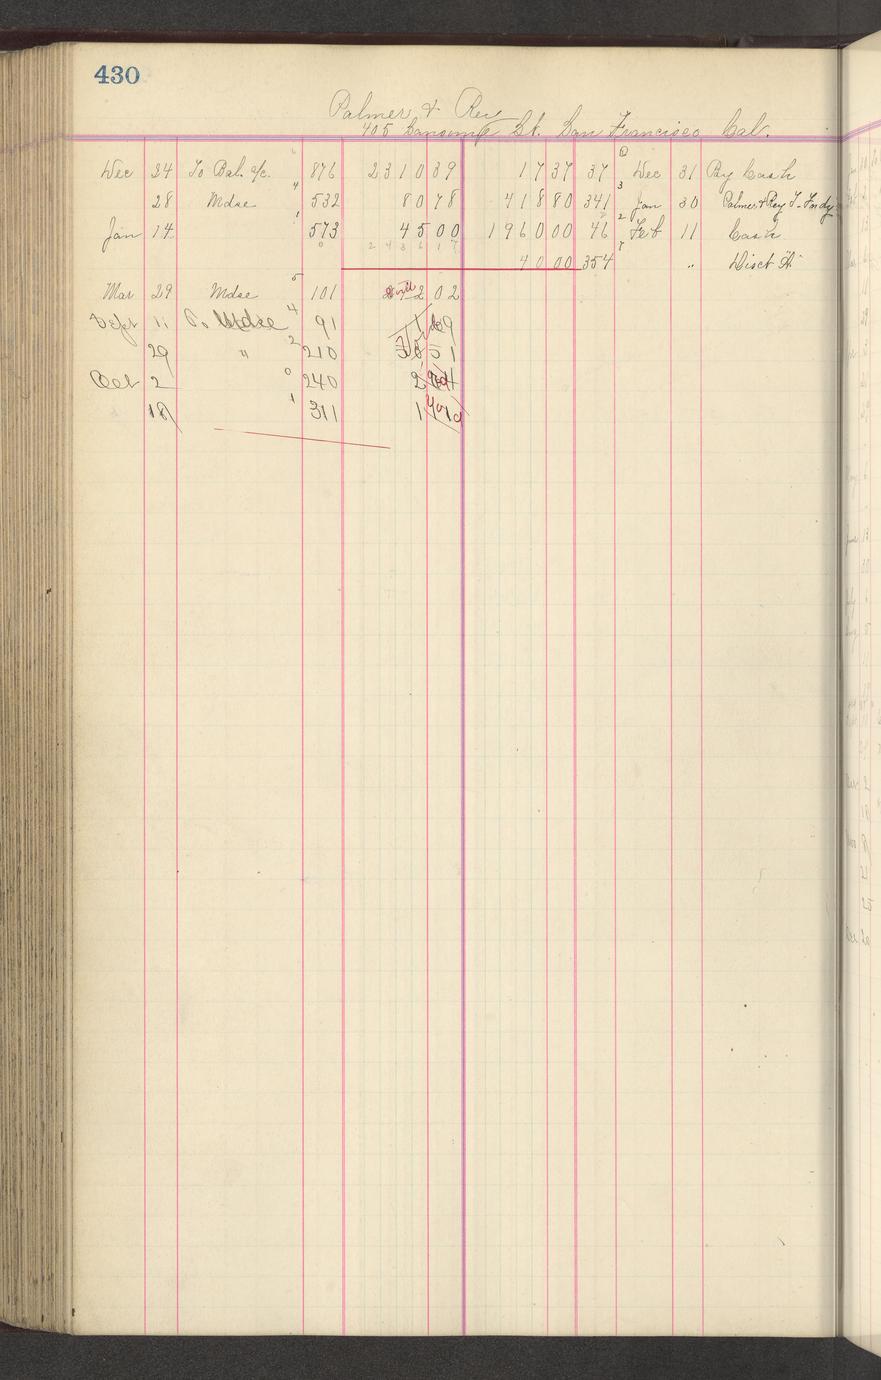 430
Palmer & Rey
405 Sansome St. San Francisco Cal.
Dec 24 To Bal. a/c. 876 2310 39 17 37 37 Dec 31 By Cash
28 Mdse 4 532 80 78 418 80 341 3 Jan 30 Palmer & Rey T. Fndy
Jan 14 1 573 45 00 1960 00 46 2 Feb 11 Cash
0 2436 17 40 00 354 7 " Disct "A"
Mar 29 Mdse 5 101 2 02
Sept 11 To Mdse 4 91
29 " 2 210
Oct 2 0 240
18 1 311